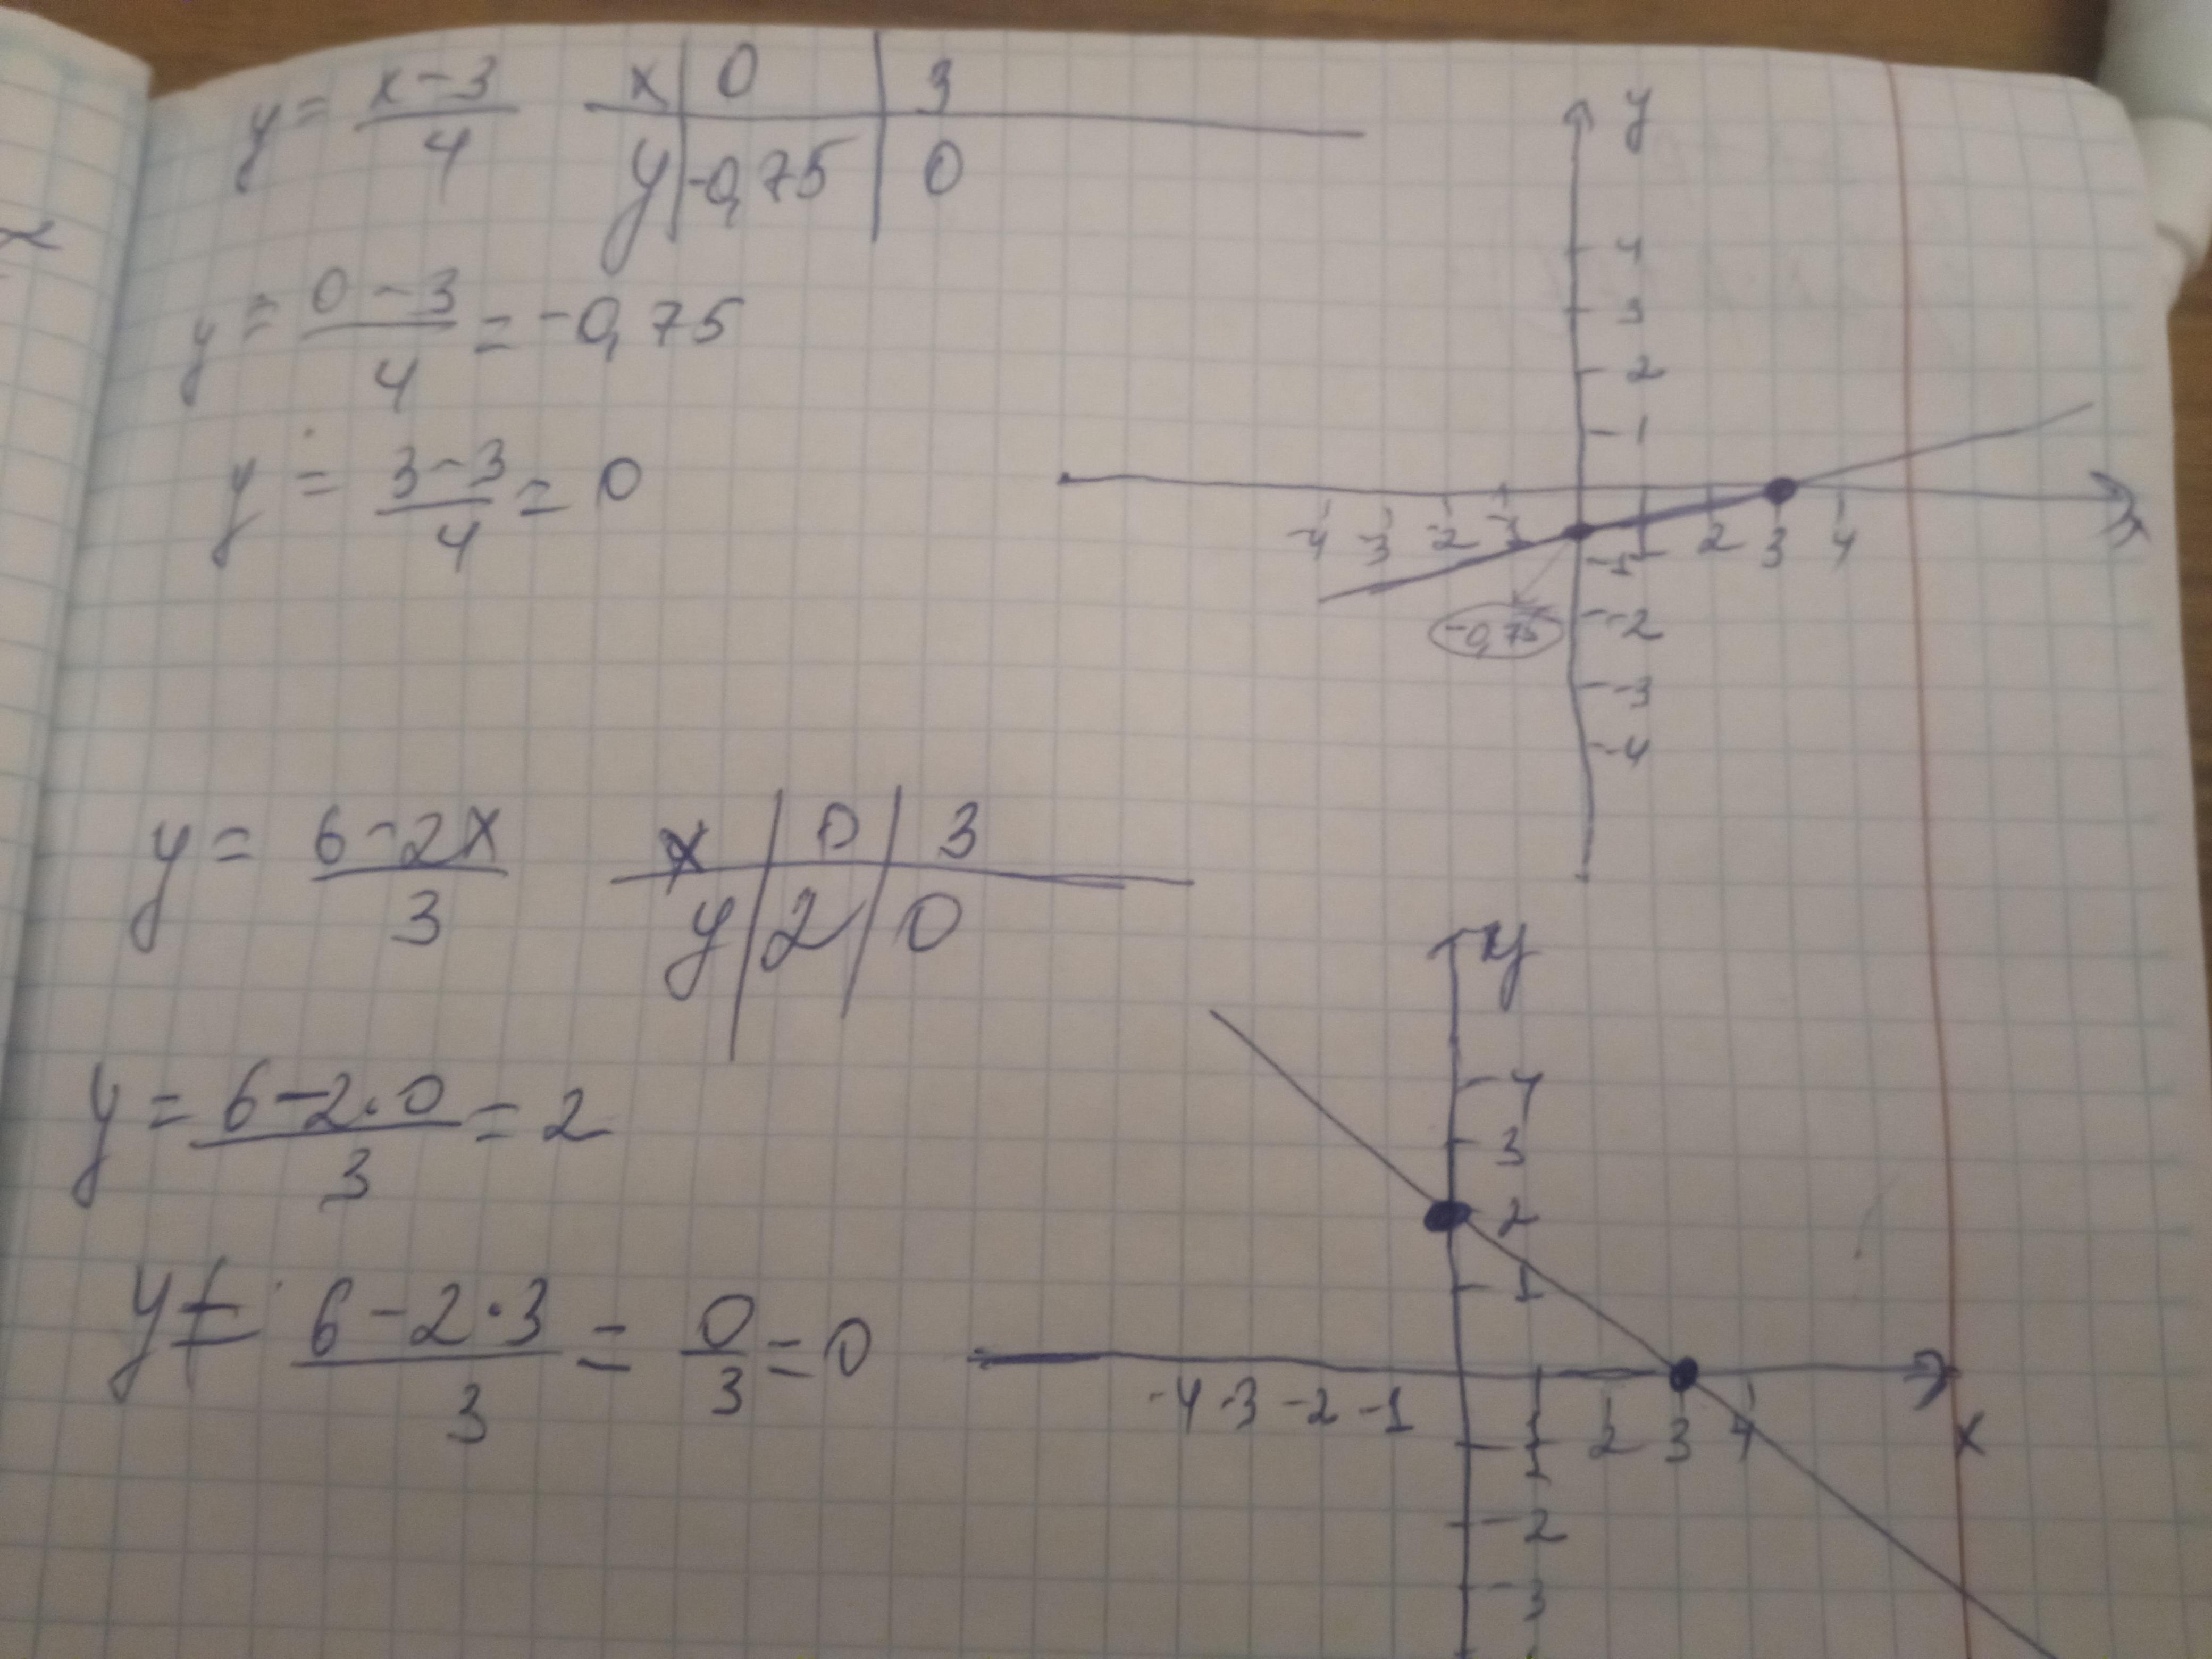 y = x-3/4
x | 0 | 3
y | -0,75 | 0
y = 0-3/4 = -0,75
y = 3-3/4 = 0
y
4
3
2
1
-4 -3 -2 -1 1 2 3 4
x
-1
-0,75
-2
-3
-4
y = 6-2x/3
x | 0 | 3
y | 2 | 0
y = 6-2·0/3 = 2
y = 6-2·3/3 = 0/3 = 0
y
4
3
2
1
-4 -3 -2 -1 1 2 3 4
x
-1
-2
-3